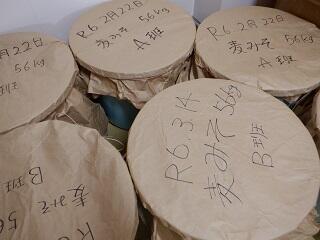 2月22日
56kg
班
R6.2月22日
麦みそ 56kg
A班
R6.2月22日
麦みそ 56kg
A班
R6.3.14
麦みそ 56kg
B班
麦みそ 56
B班